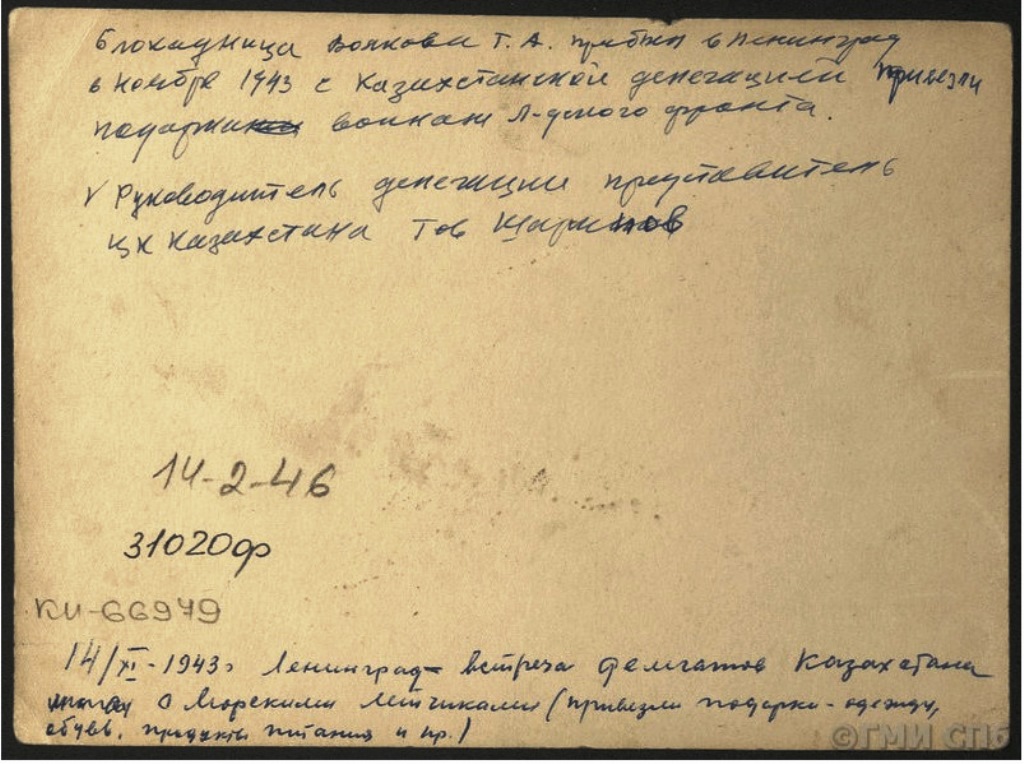 Блокадница Волкова Т. А. прибыл в Ленинград
в ноябре 1943 с Казахстанской делегацией привезли
подарки воинам Л-дского фронта.
V Руководитель делегации представитель
ЦК Казахстана Тов Шарипов
14-2-46
31020ф
КИ-66979
14/XI-1943г Ленинград - встреча делегатов Казахстана
с морскими лётчиками (привезли подарки - одежду,
обувь, продукты питания и пр.)
©ГМИ СПб